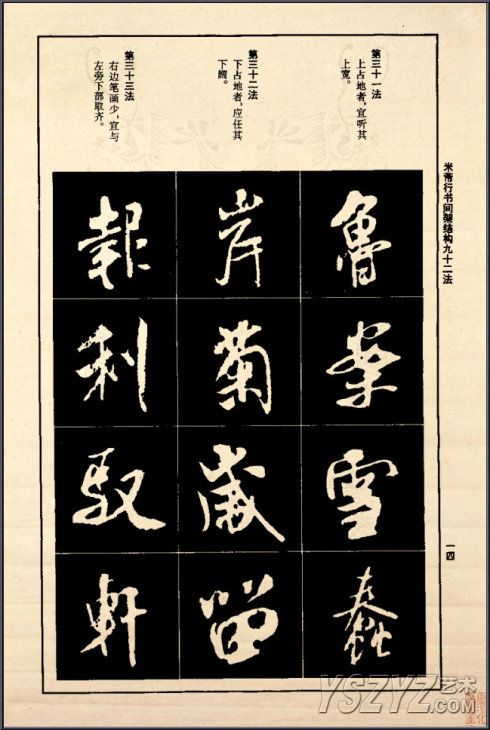 米芾行书间架结构九十二法
一四
第三十一法
上占地者,宜听其
上宽。
第三十二法
下占地者,应任其
下阔。
第三十三法
右边笔画少,宜与
左旁下部取齐。
魯案雪蠢
岸菊歲留
報利馭軒
YSZYZ艺术
.COM